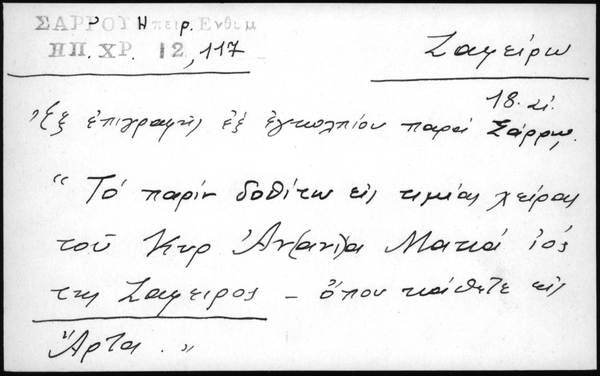 ΣΑΡΡΟΥ Ηπειρ. Ενθυμ
ΗΠ. ΧΡ. 12, 117
Ζαφείρω
18. αἰ.
Ἐξ ἐπιγραφῆς ἐξ ἐγκολπίου παρά Σάρρω,
“ Τό παρίν δοθίτω εἰς τιμίας χείρας
τοῦ Κυρ Ἀν(ανί)α Ματκά ἱός
της Ζαφειρος – ὅπου κάθετε εἰς
Ἄρτα. ”